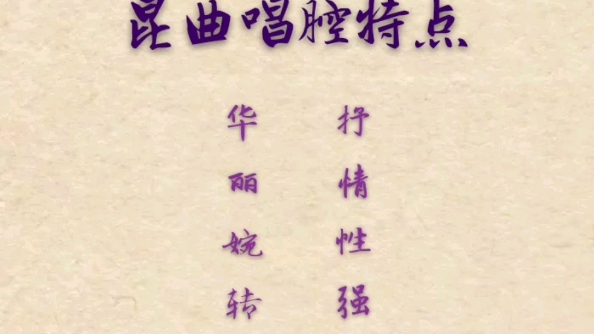 昆曲唱腔特点
抒情性强
华丽婉转